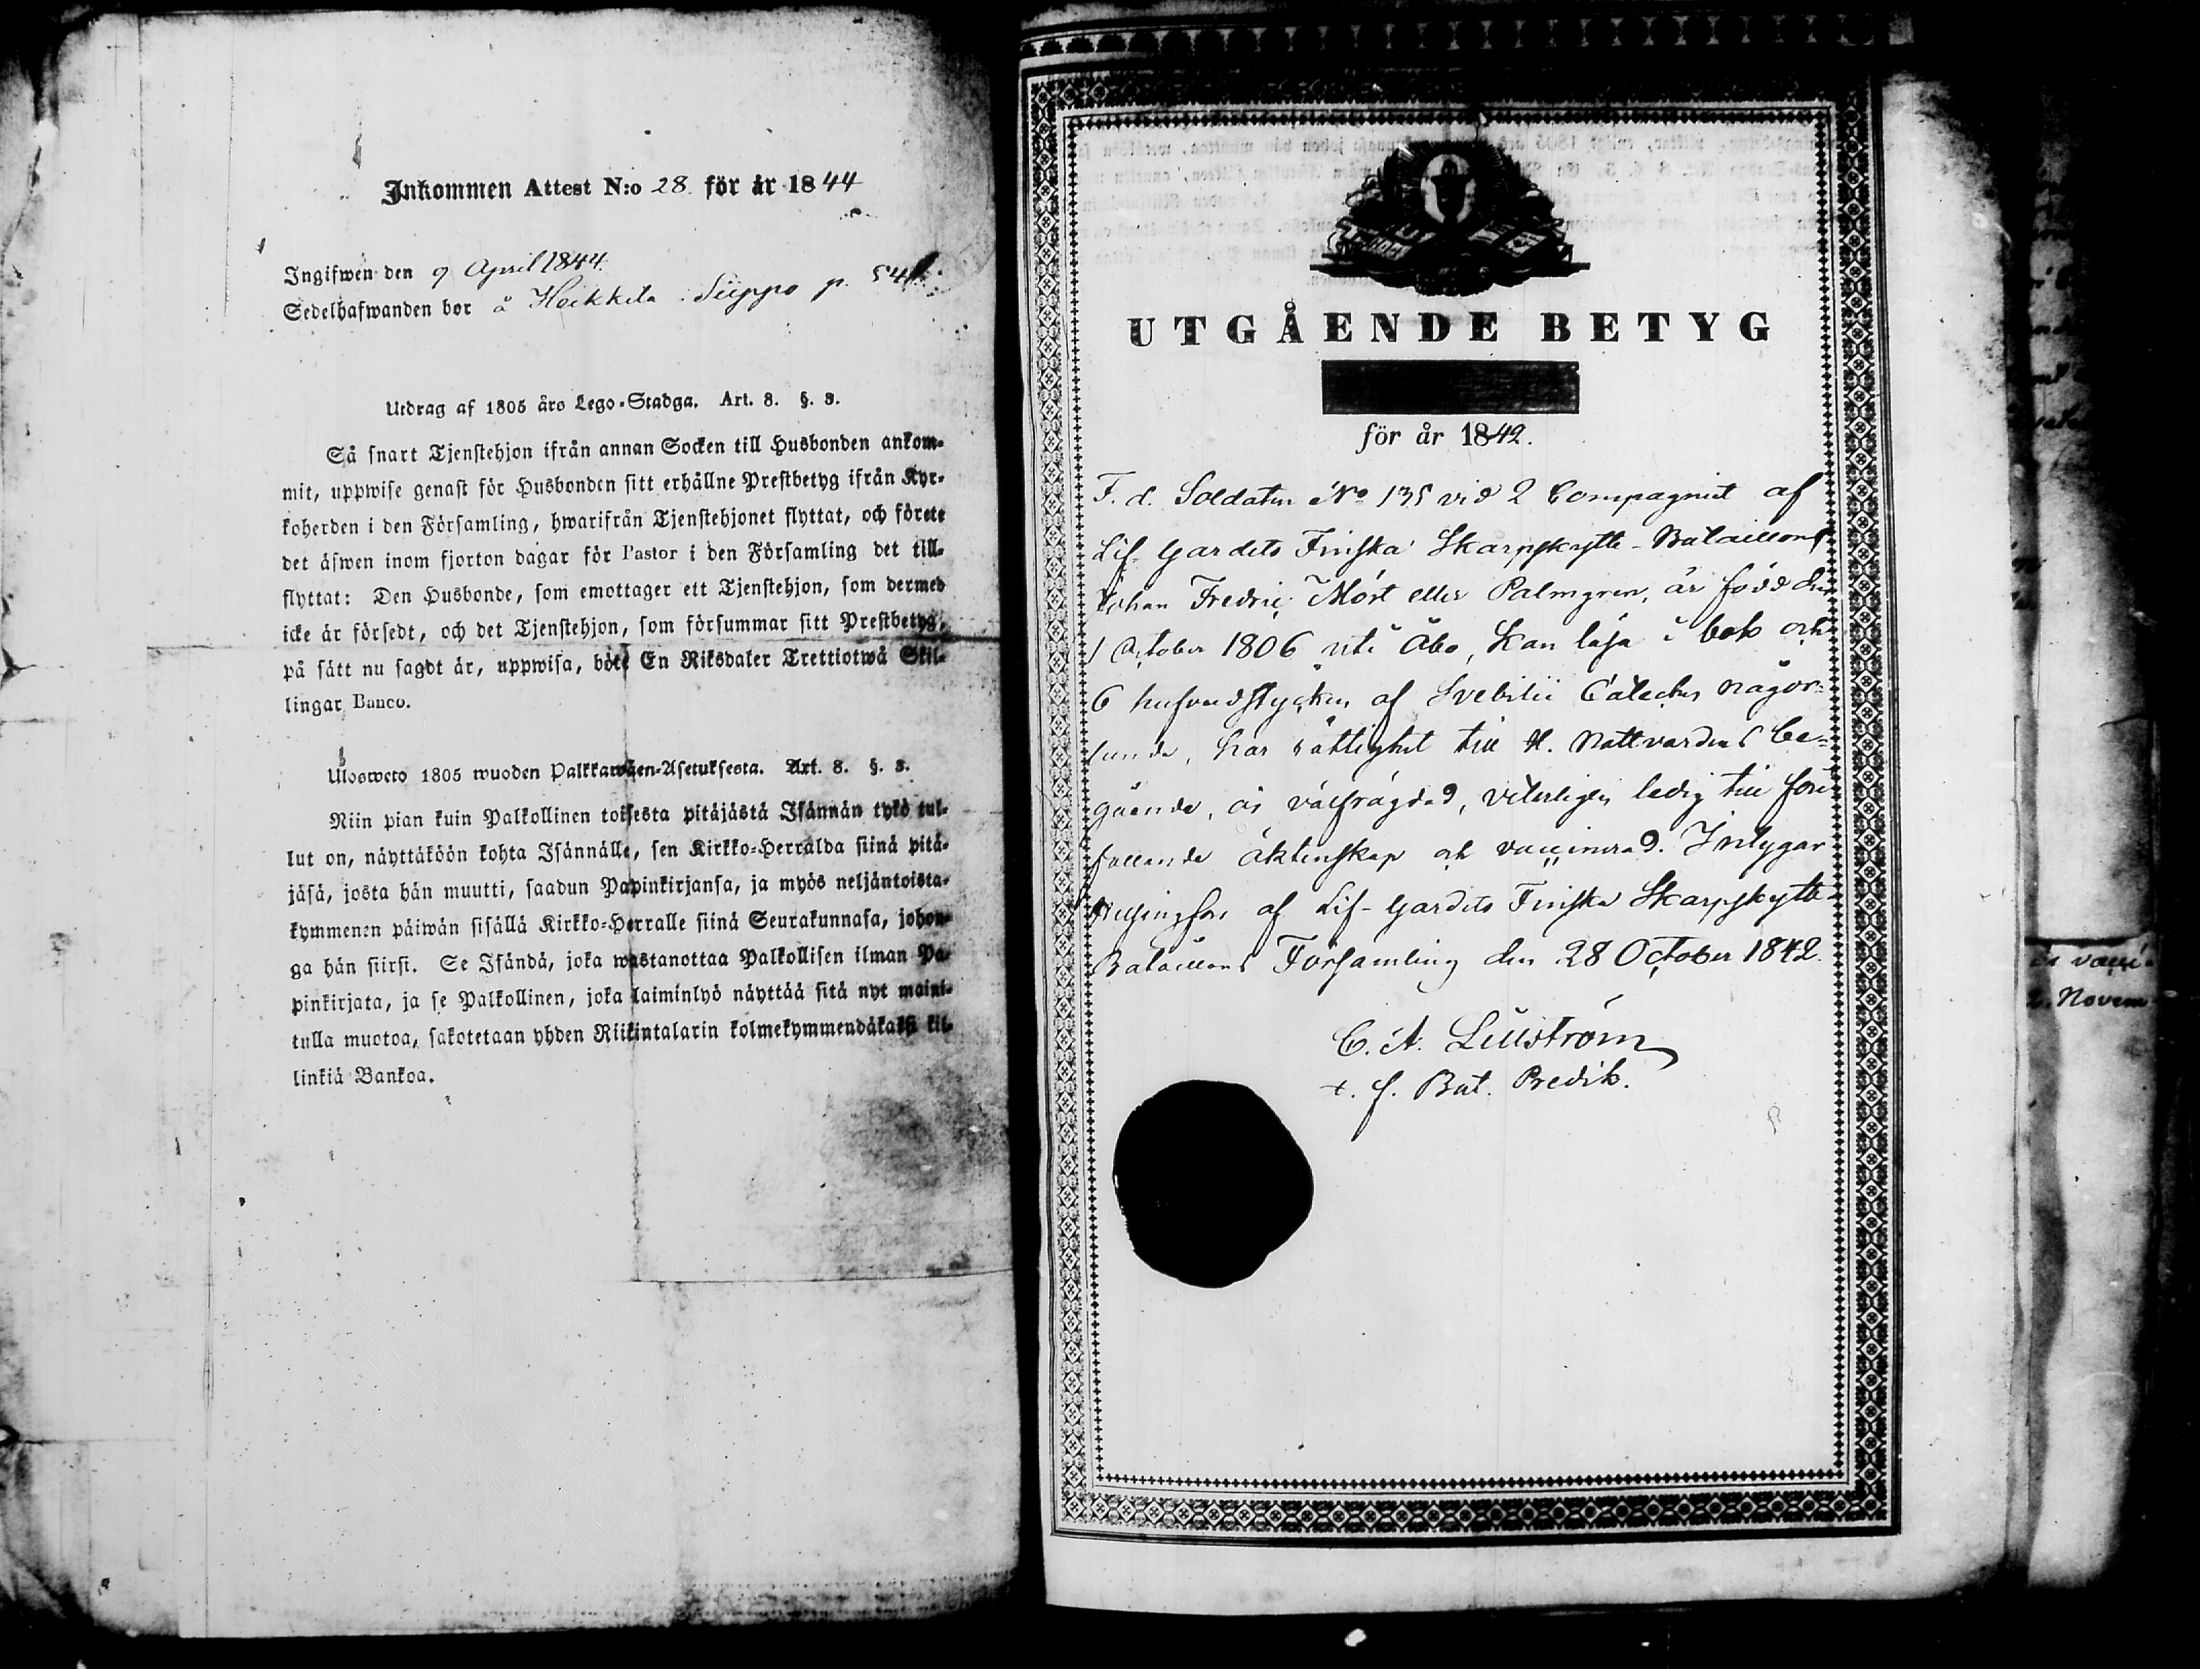 Inkommen Attest N:o 28. för år 1844
Ingifwen den 9 April 1844.
Sedelhafwanden bor å Heikkila i Suppo p. 541
Utdrag af 1805 års Lego-Stadga. Art. 8. §. 3.
Så snart Tjenstehjon ifrån annan Socken till Husbonden ankom-
mit, uppwise genast för Husbonden sitt erhållne Prestbetyg ifrån Kyr-
koherden i den Församling, hwarifrån Tjenstehjonet flyttat, och förete
det äfwen inom fjorton dagar för Pastor i den Församling det till-
flyttat: Den Husbonde, som emottager ett Tjenstehjon, som dermed
icke är försedt, och det Tjenstehjon, som försummar sitt Prestbetyg,
på sätt nu sagdt är, uppwisa, böte En Riksdaler Trettiotwå Skil-
lingar Banco.
Ulosweto 1805 wuoden Palkkawäen-Asetuksesta. Art. 8. §. 3.
Niin pian kuin Palkollinen toisesta pitäjästä Isännän tykö tul-
lut on, näyttäköön kohta Isännälle, sen Kirkko-Herralda siinä pitä-
jäsä, josta hän muutti, saadun Papinkirjansa, ja myös neljäntoista-
kymmenen päiwän sisällä Kirkko-Herralle siinä Seurakunnasa, johon-
ga hän siirsi. Se Isändä, joka wastanottaa Palkollisen ilman Pa-
pinkirjata, ja se Palkollinen, joka laiminlyö näyttää sitä nyt maini-
tulla muotoa, sakotetaan yhden Riikintalarin kolmekymmendäkaksi kil-
linkiä Bankoa.
UTGÅENDE BETYG
för år 1842.
F. d. Soldaten No 135 vid 2 Compagniet af
Lif-Gardets Finska Skarpskytte-Bataillon
Johan Fredric Möst eller Palmgren, är född den
1 October 1806 uti Åbo, kan läsa i bok och
6 hufvudstycken af Svebilii Cateches någor-
lunda, har rättighet till H. Nattvardens be-
gående, är välfrägdad, veterligen ledig till före
fallande äktenskap och vaccinerad. Intygar
Helsingfors af Lif-Gardets Finska Skarpskytte-
Bataillons Församling den 28 October 1842.
C. A. Lillström
t. f. Bat. Predik.
är vacci-
2. Novem